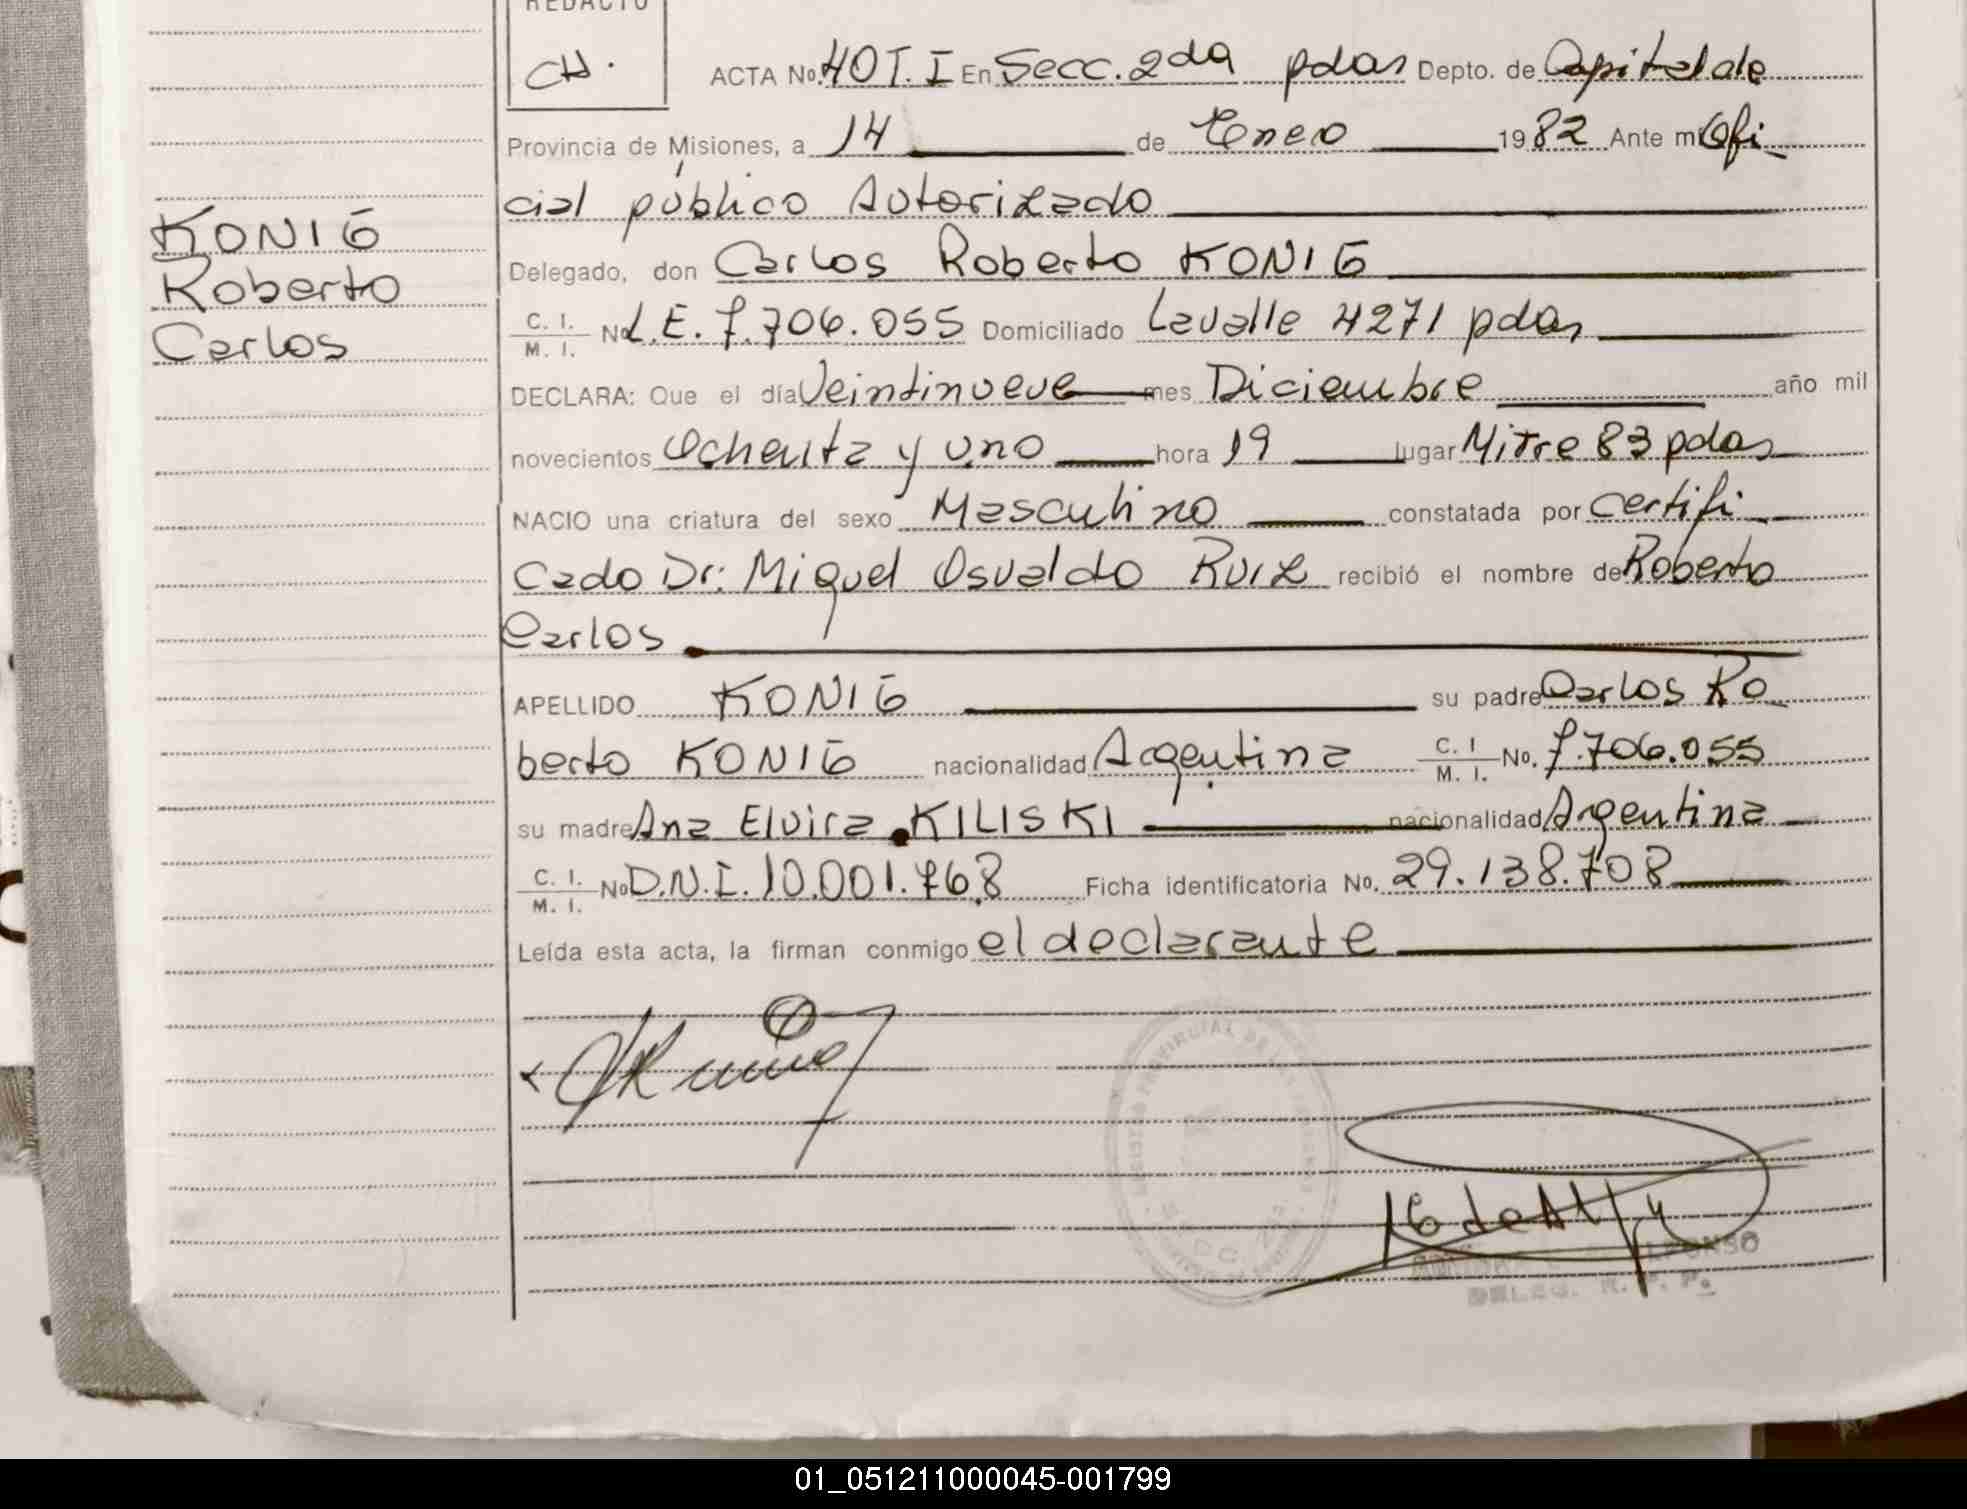 REDACTO
CH.
ACTA No. 40 T. I En Secc. 2da pdas Depto. de Capital de
Provincia de Misiones, a 14 de Enero 1982 Ante mi Ofi
cial público Autorizado
KONIG
Roberto
Carlos
Delegado, don Carlos Roberto KONIG
C. I. M. I. No L.E. 7.706.055 Domiciliado Lavalle 4271 pdas
DECLARA: Que el día Veintinueve mes Diciembre año mil
novecientos Ochenta y uno hora 19 lugar Mitre 83 pdas
NACIO una criatura del sexo Masculino constatada por certifi
cado Dr: Miguel Osvaldo Ruiz recibió el nombre de Roberto
Carlos
APELLIDO KONIG su padre Carlos Ro
berto KONIG nacionalidad Argentina C. I M. I. No. 7.706.055
su madre Ana Elvira KILISKI nacionalidad Argentina
C. I. M. I. No D.N.I. 10.001.768 Ficha identificatoria No. 29.138.708
Leída esta acta, la firman conmigo el declarante
01_051211000045-001799